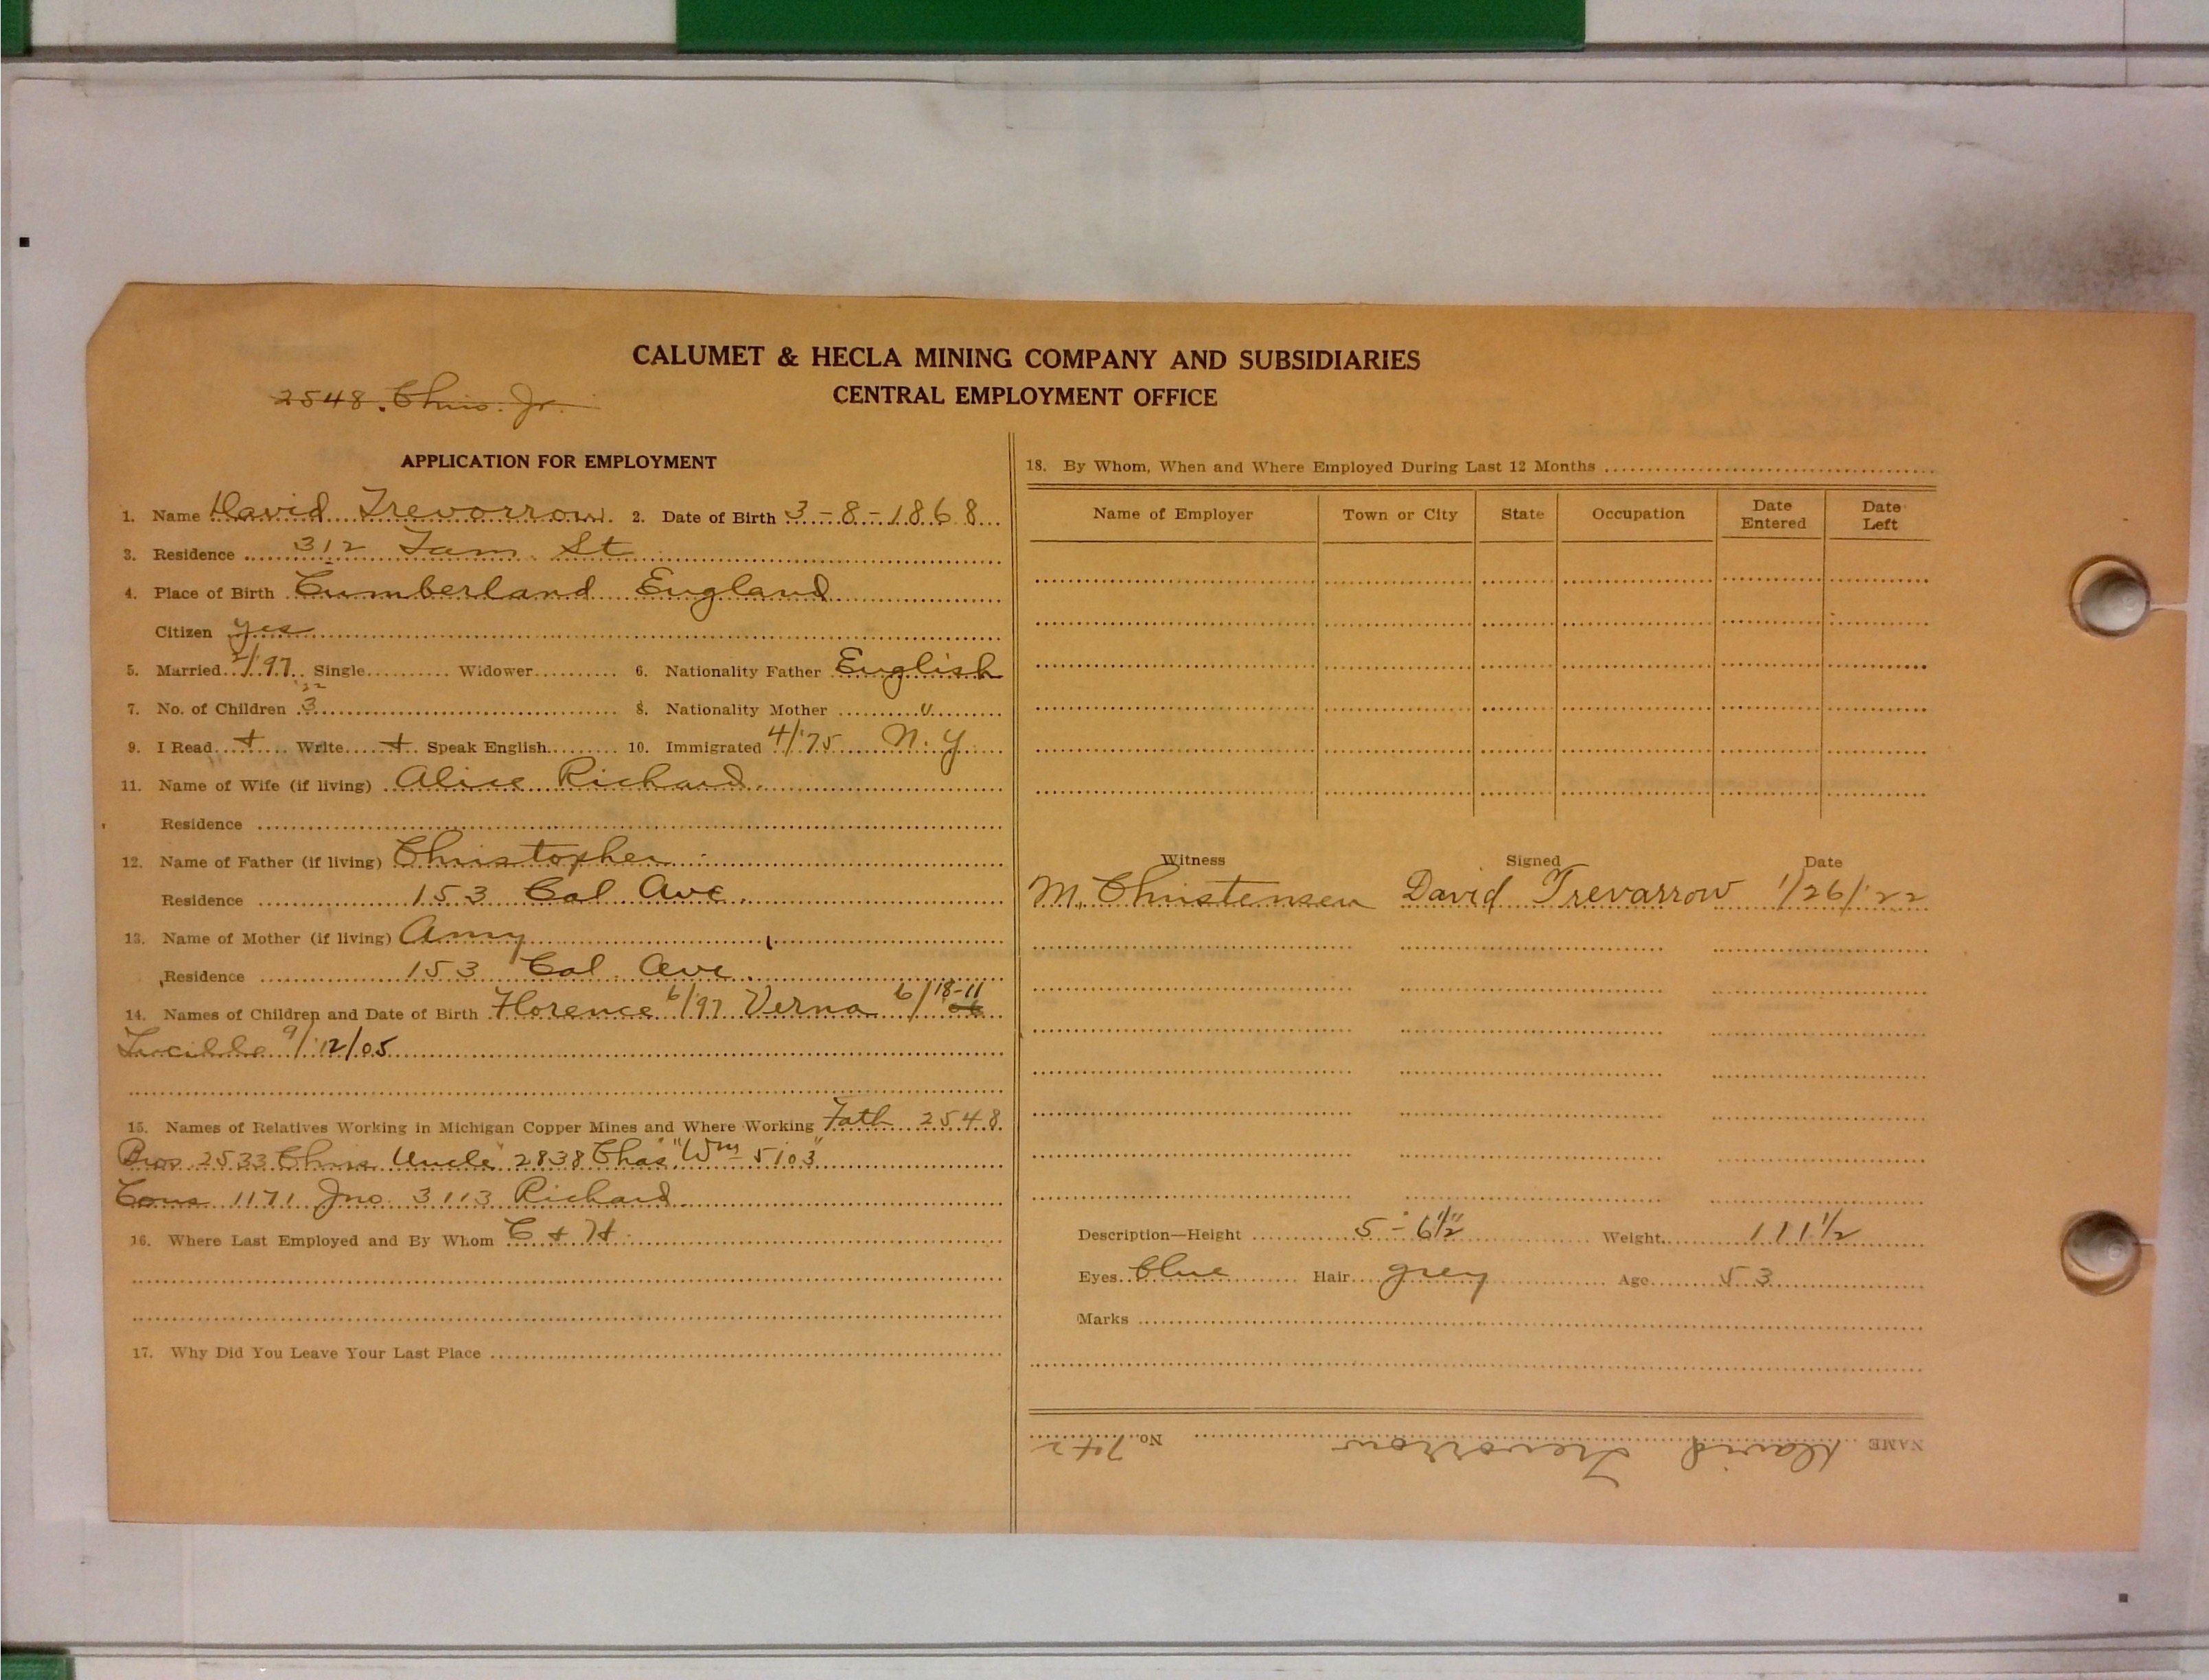 CALUMET & HECLA MINING COMPANY AND SUBSIDIARIES
CENTRAL EMPLOYMENT OFFICE
2548. Chris. Jr.
APPLICATION FOR EMPLOYMENT
1. Name David Trevorrow. 2. Date of Birth 3-8-1868
3. Residence 312 Tam. St
4. Place of Birth Cumberland England
Citizen yes
5. Married 2/97 Single Widower 6. Nationality Father English
'22
7. No. of Children 3 8. Nationality Mother "
9. I Read + Write + Speak English 10. Immigrated 4/'75 N.Y.
11. Name of Wife (if living) Alice Richard.
Residence
12. Name of Father (if living) Christopher
Residence 153 Cal Ave.
13. Name of Mother (if living) Amy
Residence 153 Cal. Ave.
14. Names of Children and Date of Birth Florence 6/97 Verna 6/18-11
Lucille 9/12/05
15. Names of Relatives Working in Michigan Copper Mines and Where Working Fath 2548
Bro. 2533 Chris Uncle 2838 Chas "Wm 5103"
Cous 1171 Jno. 3113 Richard
16. Where Last Employed and By Whom C + H.
17. Why Did You Leave Your Last Place
18. By Whom, When and Where Employed During Last 12 Months
Name of Employer Town or City State Occupation Date Entered Date Left
Witness Signed Date
M. Christensen David Trevarrow 1/26/'22
Description—Height 5-6½" Weight 111½
Eyes blue Hair grey Age 53
Marks
NAME David Trevorrow No. 742